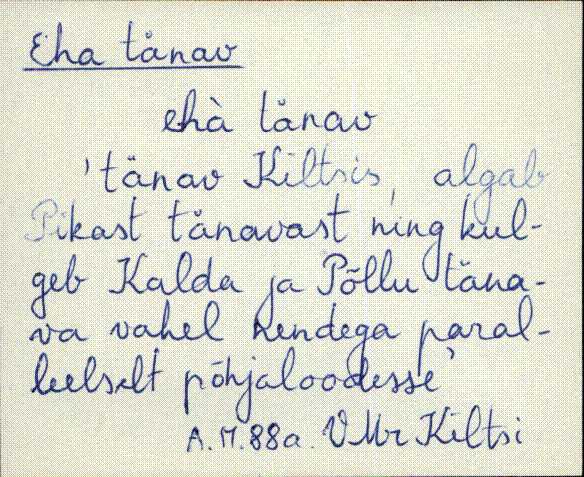 Eha tänav
ehà tänav
'tänav Kiltsis, algab
Pikast tänavast ning kul-
geb Kalda ja Põllu täna-
va vahel nendega paral-
leelselt põhjaloodesse'
A.M.88a. VMr Kiltsi